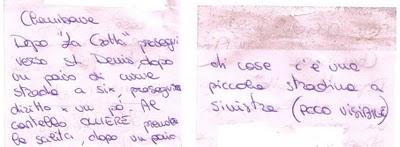 Chambave
Dopo "La Crotta" prosegui
verso St Denis, dopo
un paio di curve
strada a sx, proseguire
diritto x un pò. Al
cartello OLLIERE prendere
la salita, dopo un paio
di case c'è una
piccola stradina a
sinistra (POCO VISIBILE)